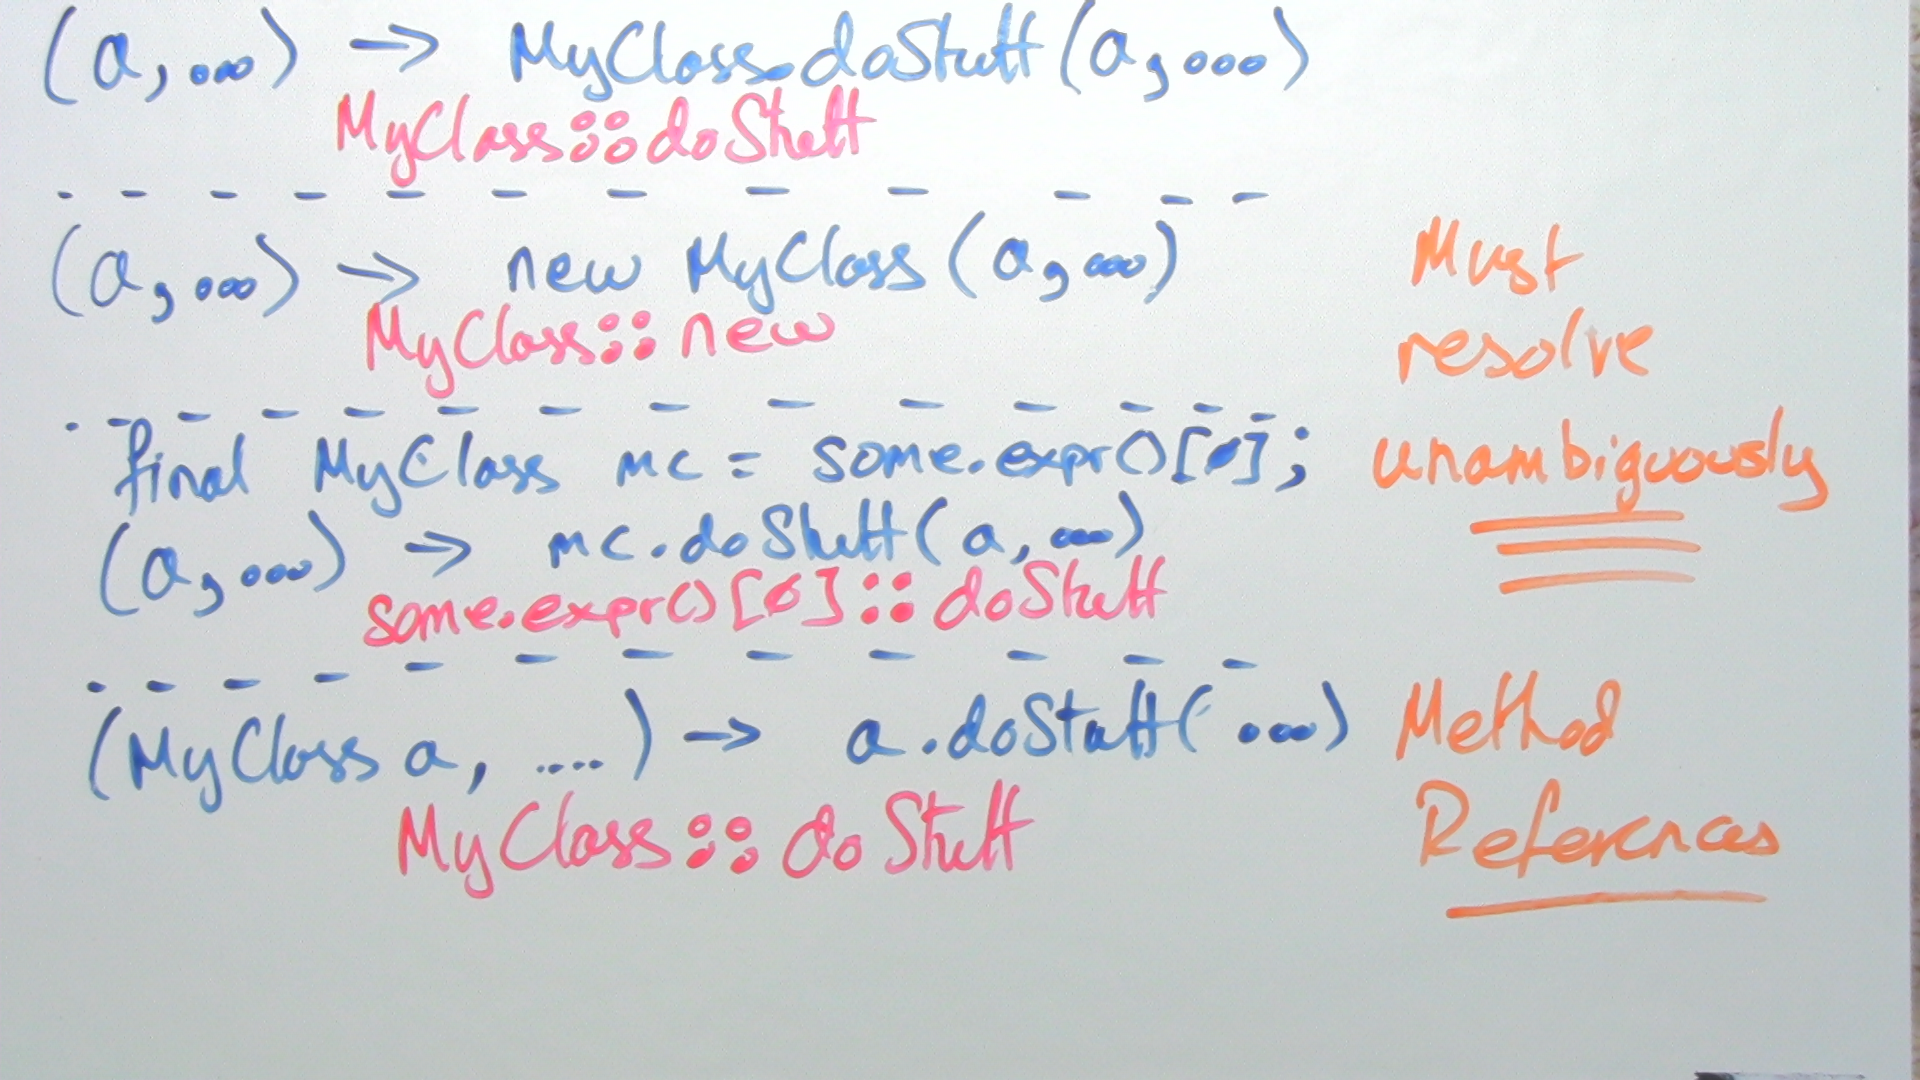 (a, ...) → MyClass.doStuff(a, ...)
MyClass::doStuff
(a, ...) → new MyClass(a, ...)
MyClass::new
final MyClass mc = some.expr()[0];
(a, ...) → mc.doStuff(a, ...)
some.expr()[0]::doStuff
(MyClass a, ....) → a.doStuff(...)
MyClass::doStuff
Must
resolve
unambiguously
Method
References